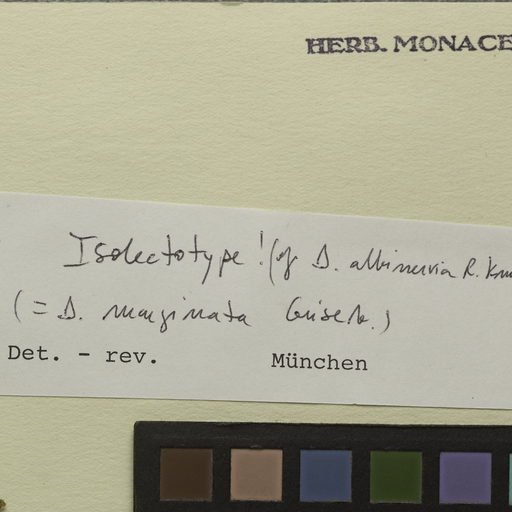 HERB. MONACE
Isolectotype! (of D. albinervia R. Knu
(= D. marginata Griseb.)
Det. - rev. München